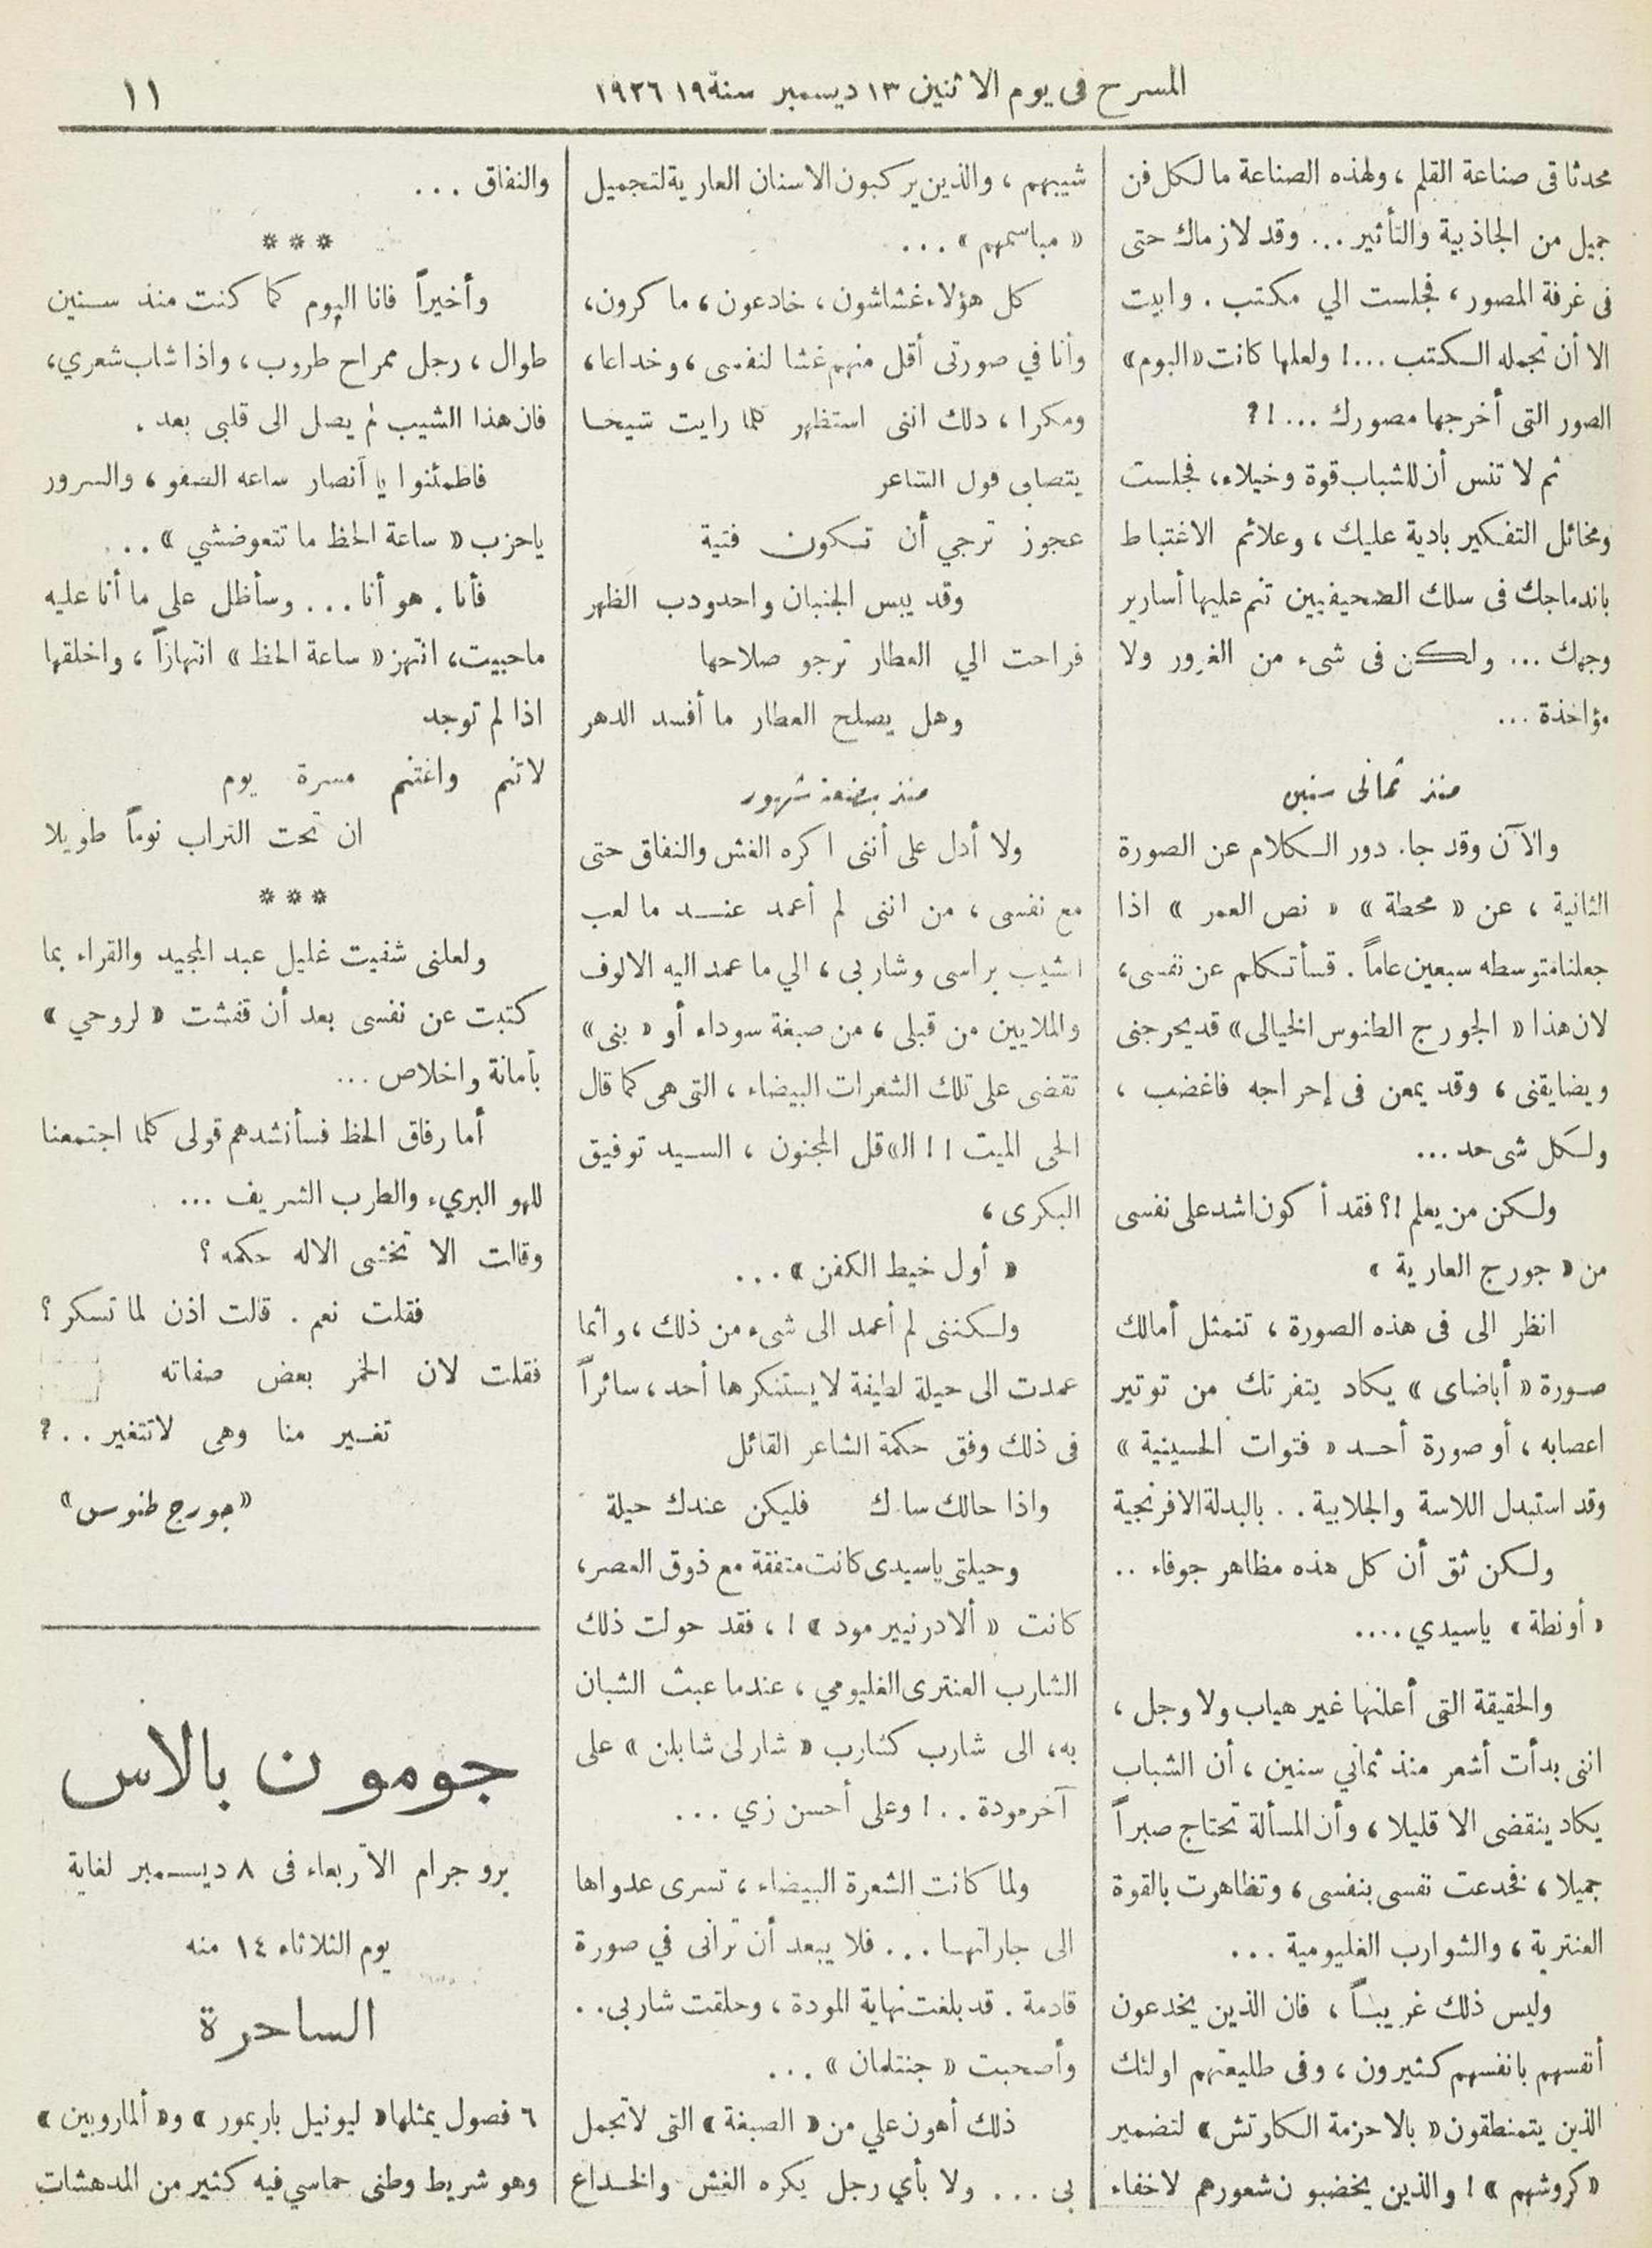 المسرح فى يوم الاثنين ١٣ ديسمبر سنة ١٩ ١٩٢٦
١١
محدثا فى صناعة القلم ، ولهذه الصناعة ما لكل فن
جميل من الجاذبية والتأثير ... وقد لازماك حتى
فى غرفة المصور ، فجلست الي مكتب . وابيت
الا أن تجمله الكتب ...! ولعلها كانت «البوم»
الصور التى أخرجها مصورك ...!؟
ثم لا تنس أن للشباب قوة وخيلاء ، فجلست
ومخائل التفكير بادية عليك ، وعلائم الاغتباط
باندماجك فى سلك الصحيفيين تنم عليها أسارير
وجهك ... ولكن فى شىء من الغرور ولا
مؤاخذة ...
منذ ثمانى سنين
والآن وقد جاء دور الكلام عن الصورة
الثانية ، عن « محطة » « نص العمر » اذا
جعلنا متوسطه سبعين عاماً . فسأتكلم عن نفسى ،
لان هذا « الجورج الطنوس الخيالى » قد يحرجنى
ويضايقنى ، وقد يمعن فى إحراجه فاغضب ،
ولكل شى حد ...
ولكن من يعلم !؟ فقد أكون اشد على نفسى
من « جورج العارية »
انظر الى فى هذه الصورة ، تتمثل أمالك
صورة « أباضاى » يكاد يتفرتك من توتير
اعصابه ، أو صورة أحد « فتوات الحسينية »
وقد استبدل اللاسة والجلابية .. بالبدلة الافرنجية
ولكن ثق أن كل هذه مظاهر جوفاء ..
« أونطة » ياسيدي ....
والحقيقة التى أعلنها غير هياب ولا وجل ،
اننى بدأت أشعر منذ ثماني سنين ، أن الشباب
يكاد ينقضى الا قليلا ، وأن المسألة تحتاج صبراً
جميلا ، فخدعت نفسى بنفسى ، وتظاهرت بالقوة
العنترية ، والشوارب الغليومية ...
وليس ذلك غريباً ، فان الذين يخدعون
أنفسهم بانفسهم كثيرون ، وفى طليعتهم اولئك
الذين يتمنطقون « بالاحزمة الكاوتش » لتضمير
« كروشهم » ! والذين يخضبون شعورهم لاخفاء
شيبهم ، والذين يركبون الاسنان العارية لتجميل
« مباسمهم » ...
كل هؤلاء غشاشون ، خادعون ، ماكرون ،
وأنا في صورتى أقل منهم غشا لنفسى ، وخداعا ،
ومكرا ، ذلك اننى استظهر كلما رايت شيخا
يتصابى قول الشاعر
عجوز ترجي أن تكون فتية
وقد يبس الجنبان واحدودب الظهر
فراحت الي العطار ترجو صلاحها
وهل يصلح العطار ما أفسد الدهر
منذ بضعة شهور
ولا أدل على أننى اكره الغش والنفاق حتى
مع نفسى ، من اننى لم أعمد عند ما لعب
الشيب براسى وشاربى ، الي ما عمد اليه الالوف
والملايين من قبلى ، من صبغة سوداء أو « بنى »
تقضى على تلك الشعرات البيضاء ، التى هى كما قال
الحى الميت !! العاقل المجنون ، السيد توفيق
البكرى ،
« أول خيط الكفن » ...
ولكننى لم أعمد الى شىء من ذلك ، وانما
عمدت الى حيلة لطيفة لا يستنكرها أحد ، سائراً
فى ذلك وفق حكمة الشاعر القائل
واذا حالك ساءك فليكن عندك حيلة
وحيلتى ياسيدى كانت متفقة مع ذوق العصر ،
كانت « ألادرنيير مود » ! ، فقد حولت ذلك
الشارب العنترى الغليومي ، عندما عبث الشبان
به ، الى شارب كشارب « شارلى شابلن » على
آخر مودة ..! وعلى أحسن زي ...
ولما كانت الشعرة البيضاء ، تسرى عدواها
الى جاراتها ... فلا يبعد أن ترانى في صورة
قادمة . قد بلغت نهاية المودة ، وحلقت شاربى ..
وأصحبت « جنتلمان » ...
ذلك أهون علي من « الصبغة » التى لاتجمل
بى ... ولا بأي رجل يكره الغش والخداع
والنفاق ...
***
وأخيراً فانا اليوم كما كنت منذ سنين
طوال ، رجل ممراح طروب ، واذا شاب شعري ،
فان هذا الشيب لم يصل الى قلبى بعد .
فاطمئنوا يا أنصار ساعه الصفو ، والسرور
ياحزب « ساعة الحظ ما تتعوضشي » ..
فأنا . هو أنا ... وسأظل على ما أنا عليه
ماحييت ، انتهز « ساعة الحظ » انتهازاً ، واخلقها
اذا لم توجد
لاتنم واغتنم مسرة يوم
ان تحت التراب نوماً طويلا
***
ولعلنى شفيت غليل عبد المجيد والقراء بما
كتبت عن نفسى بعد أن قفشت « لروحي »
بأمانة واخلاص ...
أما رفاق الحظ فسأنشدهم قولى كلما اجتمعنا
للهو البريء والطرب الشريف ...
وقالت الا تخشى الاله حكمه ؟
فقلت نعم . قالت اذن لما تسكر ؟
فقلت لان الخمر بعض صفاته
تغسير منا وهى لاتتغير ..؟
«جورج طنوس»
جومون بالاس
بروجرام الأربعاء فى ٨ ديسمبر لغاية
يوم الثلاثاء ١٤ منه
الساحرة
٦ فصول يمثلها « ليونيل باريمور » و« ألماروبين »
وهو شريط وطنى حماسي فيه كثير من المدهشات